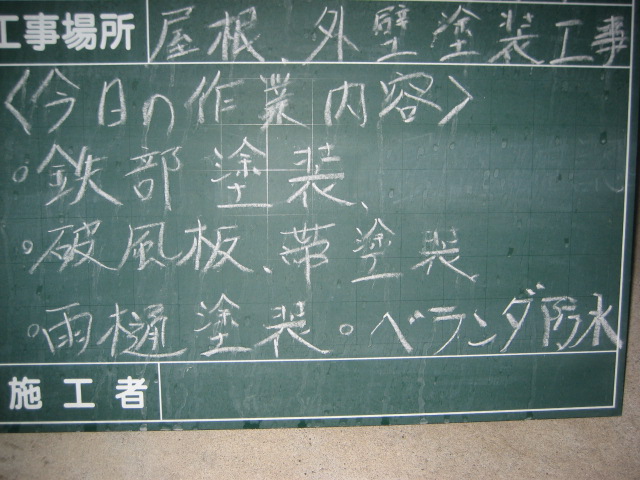 工事場所 屋根、外壁塗装工事
〈今日の作業内容〉
・鉄部塗装、
・破風板、帯塗装
・雨樋塗装・ベランダ防水
施工者